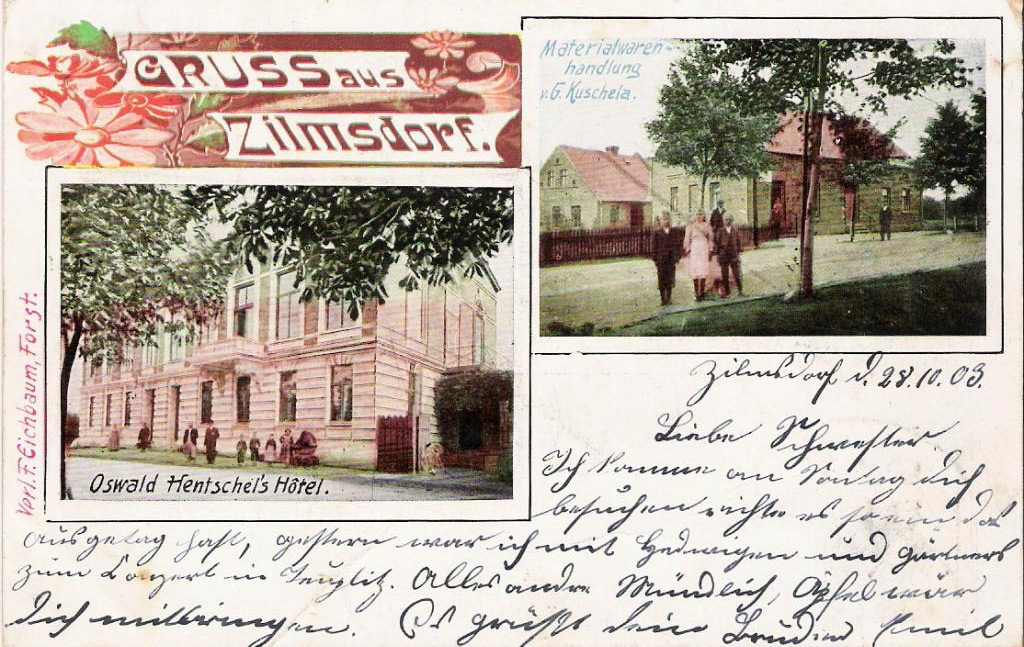 GRUSS aus
Zilmsdorf.
Materialwaren-
handlung
v. G. Kuschela.
Oswald Hentschel's Hôtel.
Verl. F. Eichbaum, Forst.
Zilmsdorf d. 28.10.03.
Liebe Schwester.
Ich komme am Sontag dich
besuchen richte es so ein das
Ausgetag hast, gestern war ich mit Hedwigen und Gärtners
zum Conzert in Teuplitz. Alles andre Mündlich, Äpfel wär
dich mitbringen. Es grüßt dein Bruder Emil